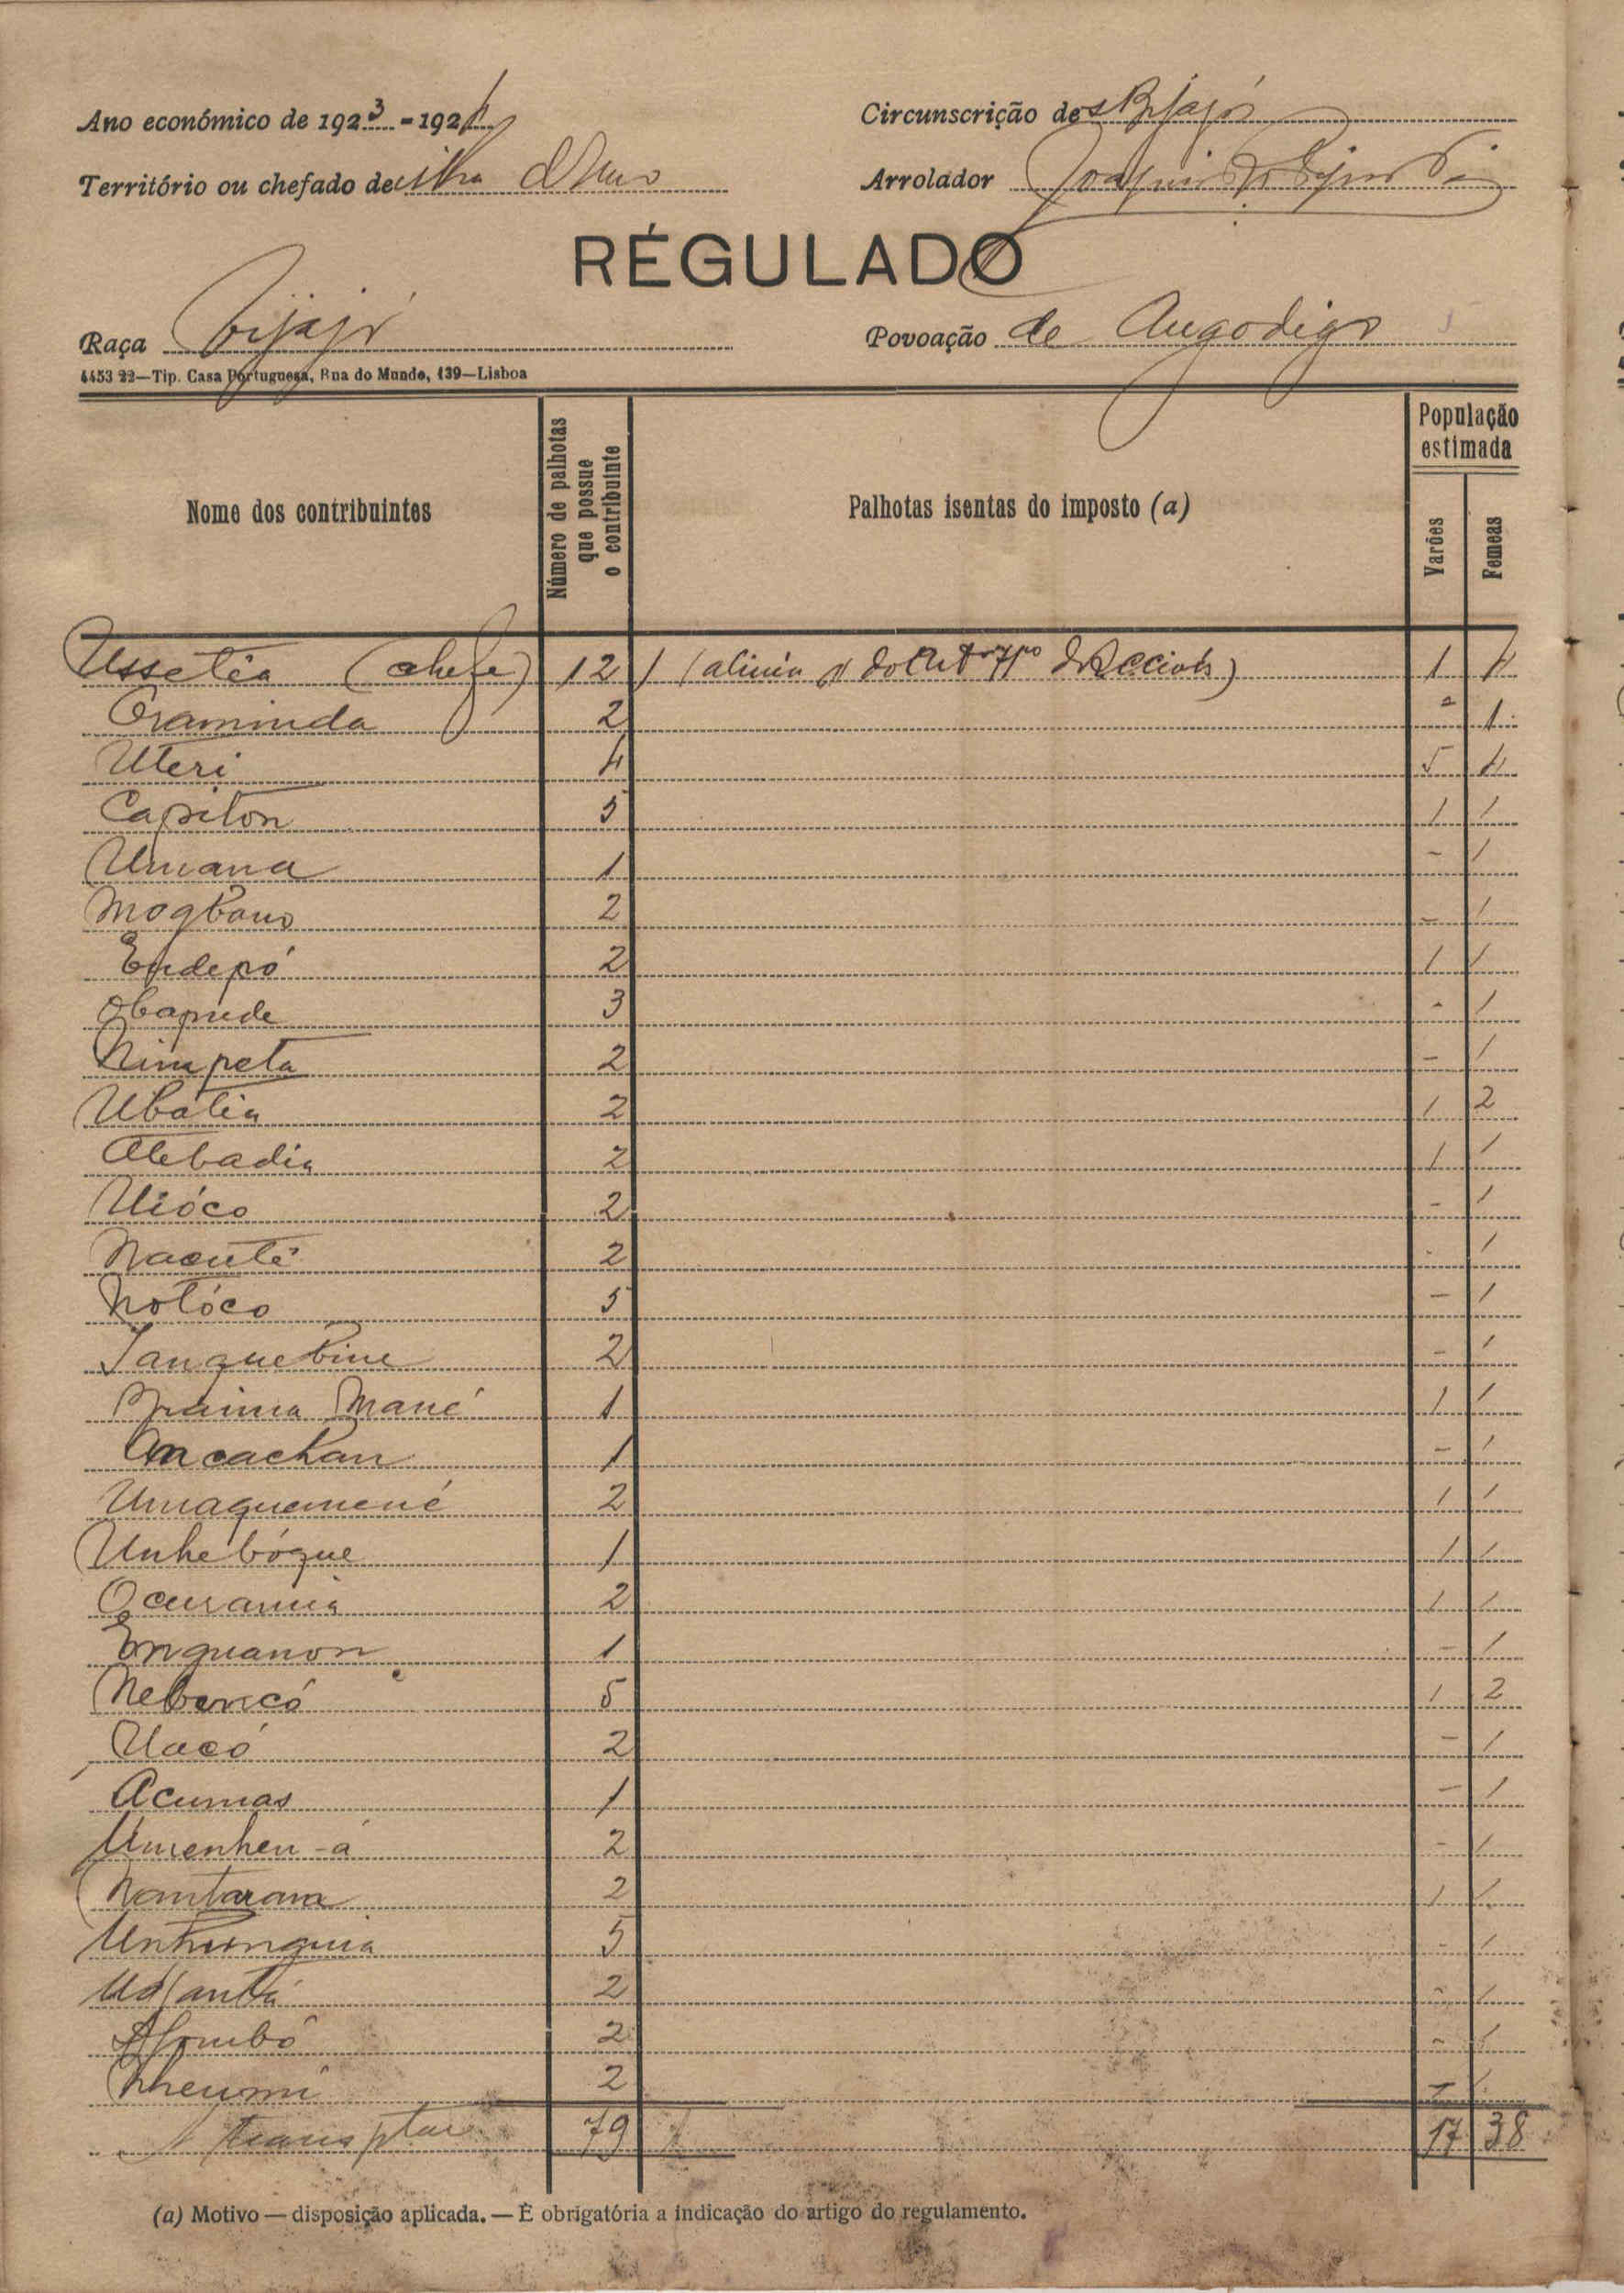 Ano económico de 1923-1924 Circunscrição dos Bijagós
Território ou chefado de ilha Arrolador Joaquim
RÉGULADO
Raça bijagó Povoação de Angodigo
4453 22—Tip. Casa Portuguesa, Rua do Mundo, 139—Lisboa
Nome dos contribuintes Número de palhotas que possue o contribuinte Palhotas isentas do imposto (a) População estimada Varões Femeas
Ussetéa (chefe) 12 1 (alinia do 1 4
Oraminda 2 - 1
Uteri 4 5 4
Capiton 5 1 1
Umana 1 - 1
Mogbano 2 - 1
Endepó 2 1 1
Obapude 3 - 1
Nimpeta 2 - 1
Ubatia 2 1 2
Atebadia 2 1 1
Uióco 2 - 1
Nacuté 2 - 1
Notóco 5 - 1
Tanquebine 2 - 1
Braima Mané 1 1 1
Ancachan 1 - 1
Umaquemené 2 1 1
Unhebóque 1 1 1
Ocurannia 2 1 1
Enquanon 1 - 1
Nebancó 5 1 2
Uacó 2 - 1
Acumas 1 - 1
Umenheu-á 2 - 1
Nantarama 2 1 1
Unhunguia 5 - 1
2 - 1
2 - 1
Nheumi 2 - 1
A transptar 79 1 17 38
(a) Motivo — disposição aplicada. — É obrigatória a indicação do artigo do regulamento.